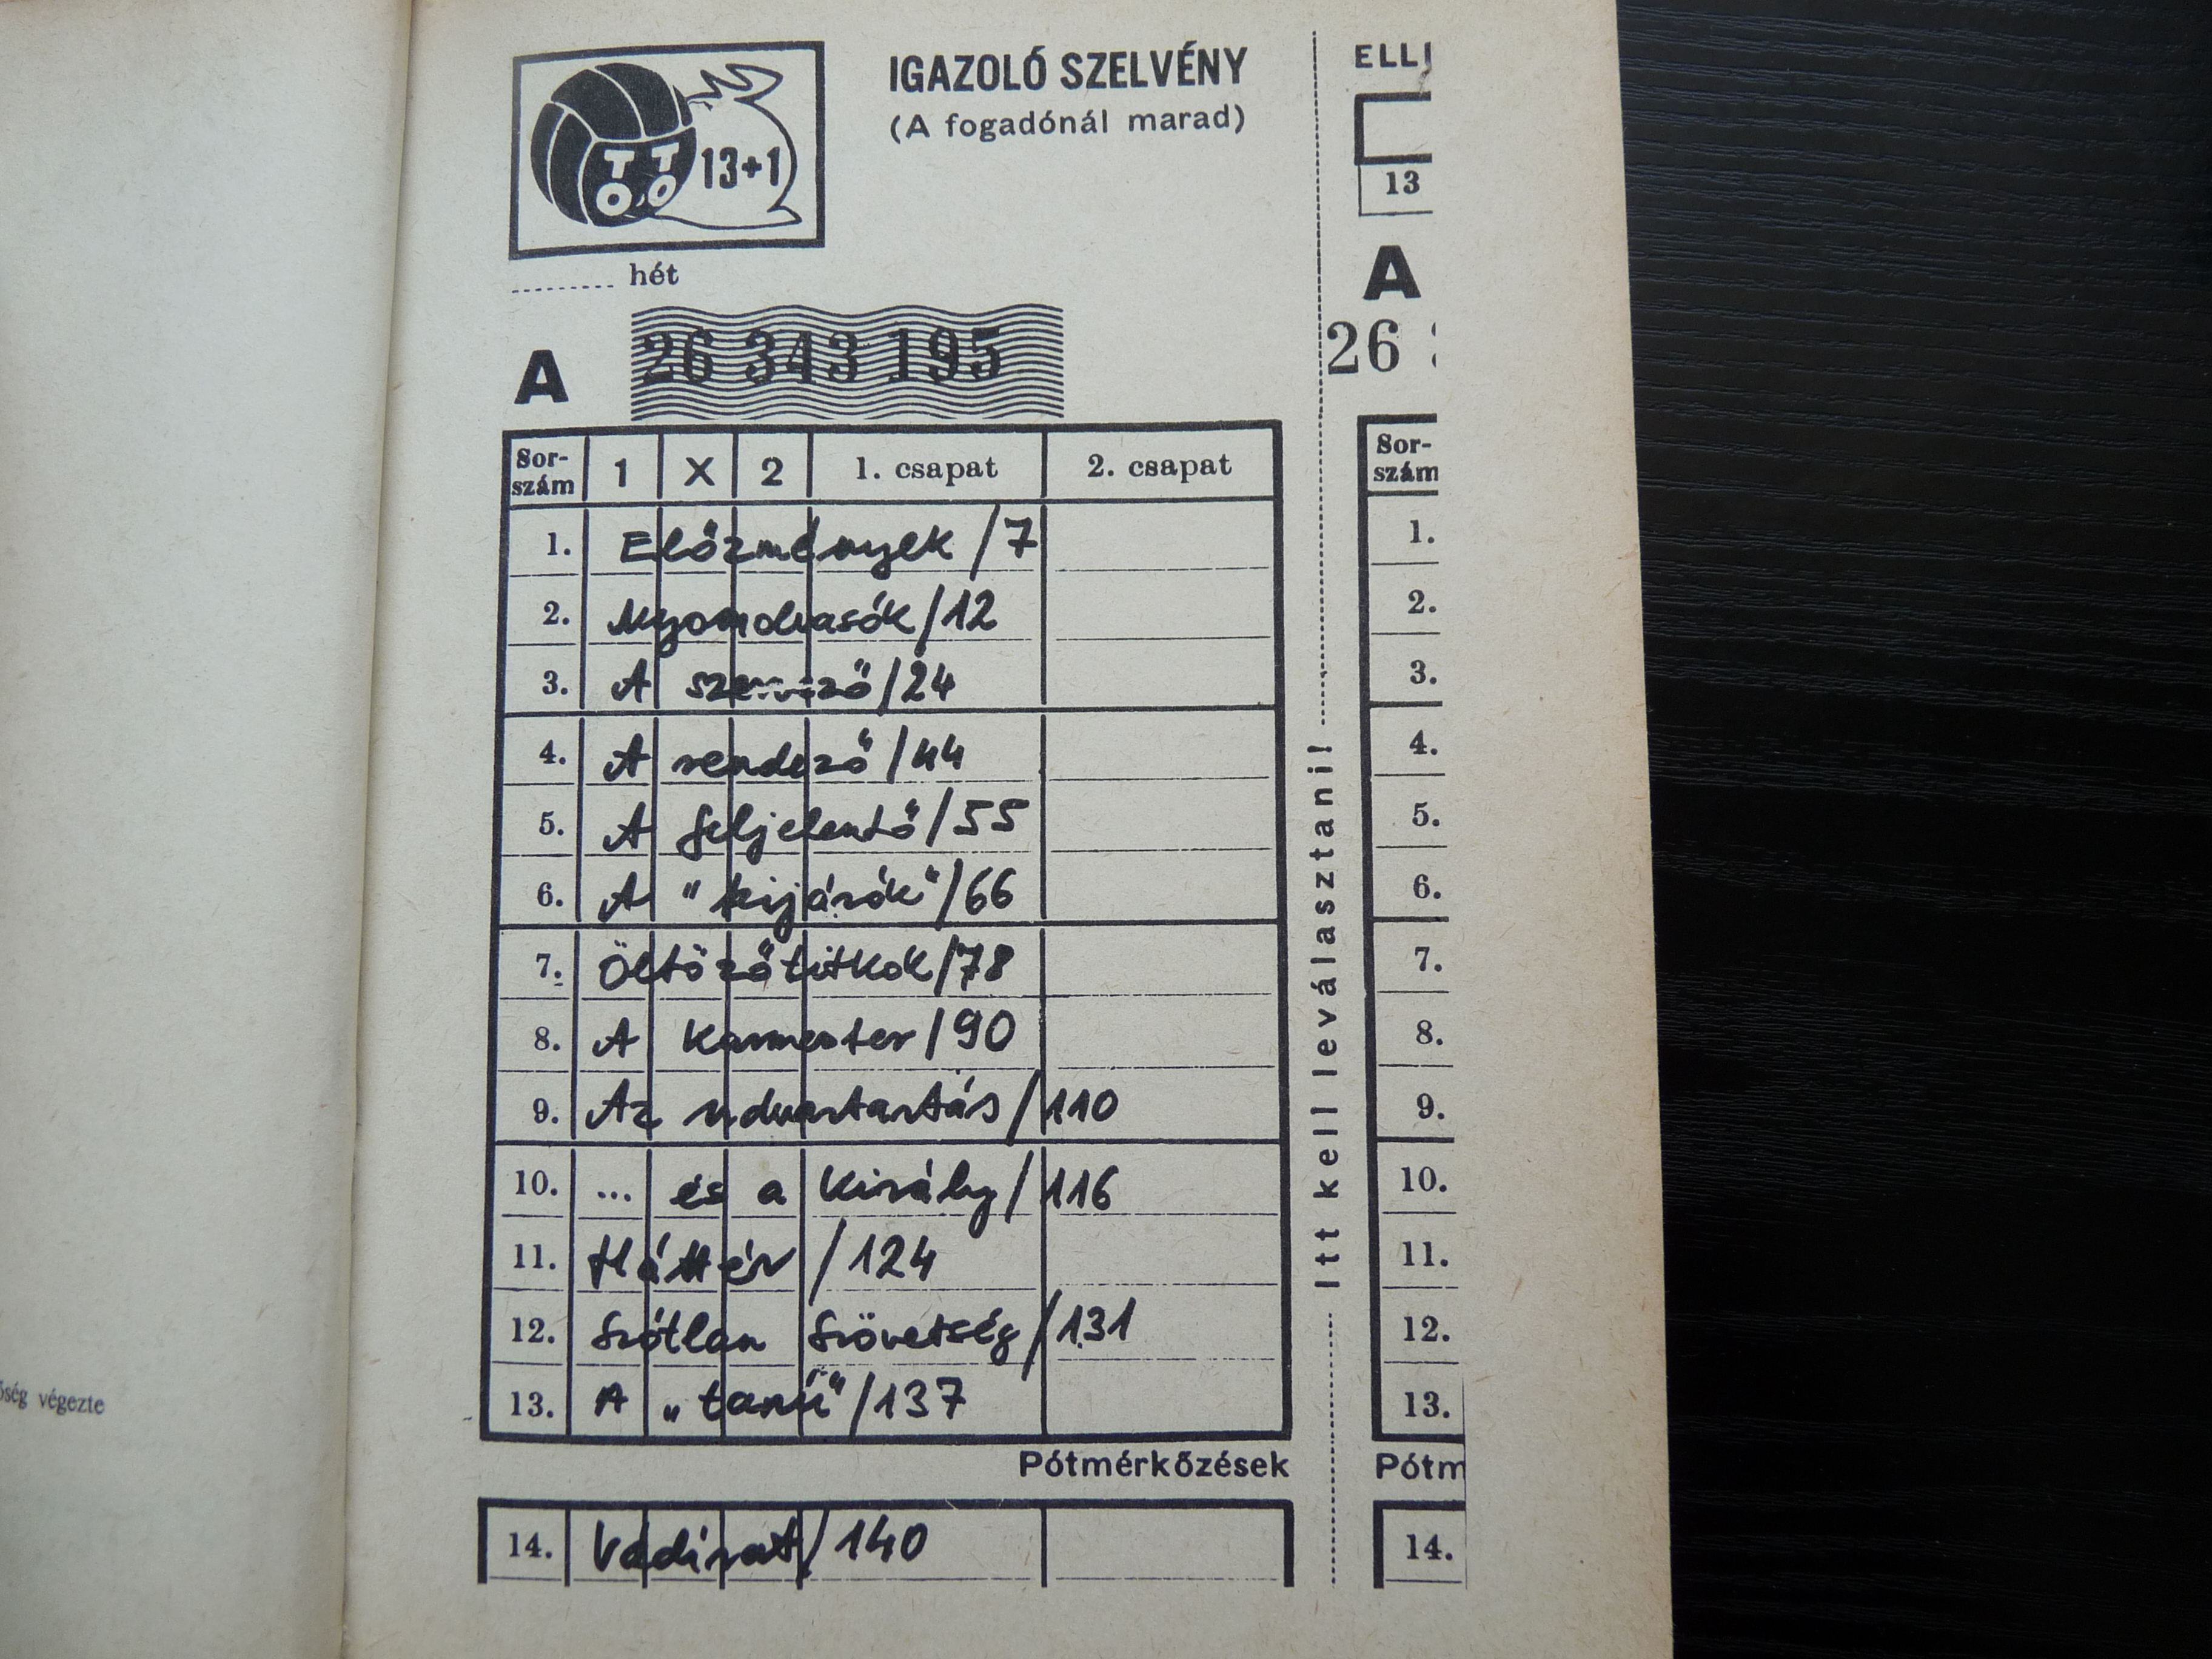 IGAZOLÓ SZELVÉNY
(A fogadónál marad)
TOTO 13+1
hét
A
26 343 195
Sor-
szám 1 X 2 1. csapat 2. csapat
1. Előzmények /7
2. Nyomolvasók /12
3. A szervező /24
4. A rendező /44
5. A feljelentő /55
6. A "kijárók" /66
7. Öltözőtitkok /78
8. A karmester /90
9. Az udvartartás /110
10. ... és a király /116
11. Háttér /124
12. Szótlan szövetség /131
13. A „tanú" /137
Pótmérkőzések
14. Vádirat /140
Itt kell leválasztani!
ELLI
13
A
26
Sor-
szám
1.
2.
3.
4.
5.
6.
7.
8.
9.
10.
11.
12.
13.
Pótm
14.
őség végezte